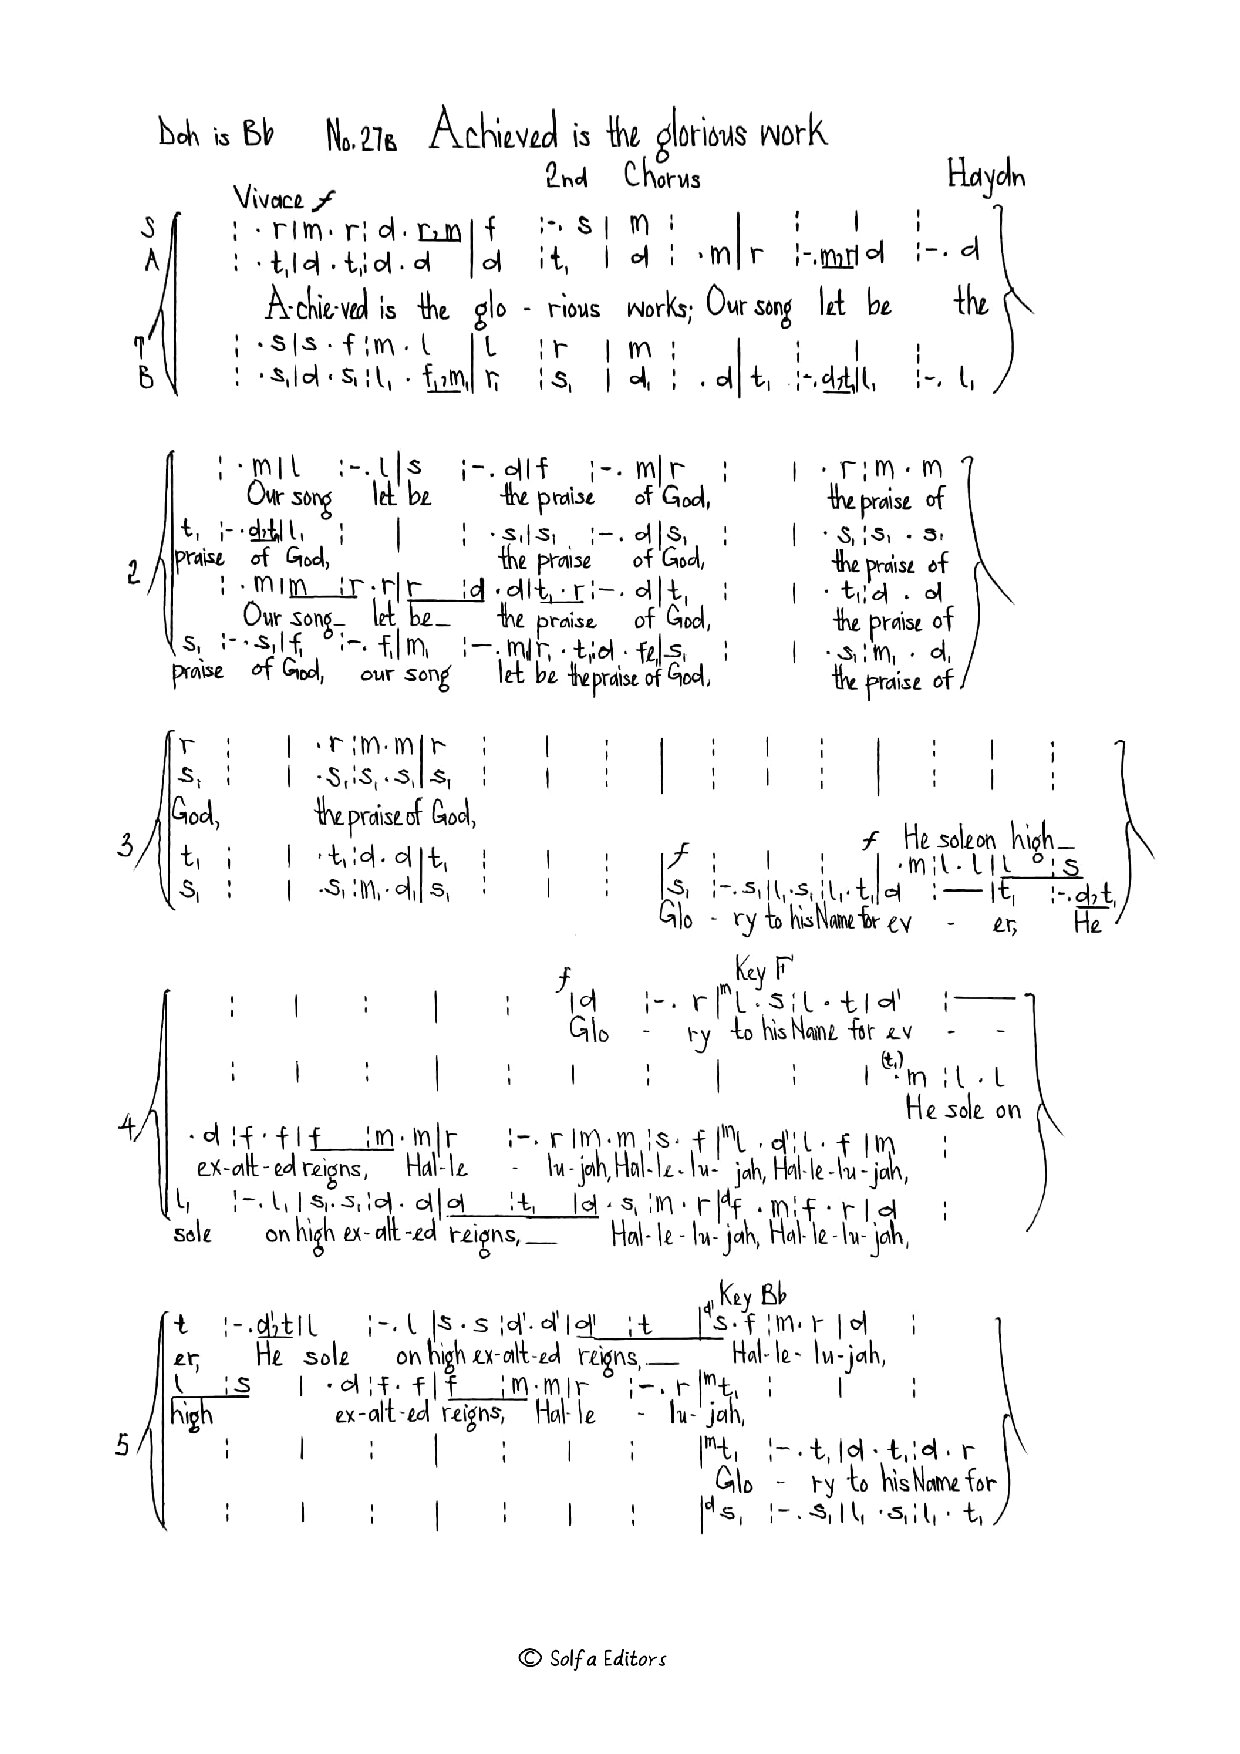 Doh is Bb No. 27B Achieved is the glorious work
2nd Chorus Haydn
Vivace f
S : . r | m . r : d . r , m | f : - . s | m : | : | :
A : . t₁ | d . t₁ : d . d | d : t₁ | d : . m | r : - . m , r | d : - . d
A-chie-ved is the glo - rious works; Our song let be the
T : . s | s . f : m . l | l : r | m : | : | :
B : . s₁ | d . s₁ : l₁ . f₁ , m₁ | r₁ : s₁ | d₁ : . d | t₁ : - . d , t₁ | l₁ : - . l₁
2
: . m | l : - . l | s : - . d | f : - . m | r : | . r : m . m
Our song let be the praise of God, the praise of
t₁ : - . d , t₁ | l₁ : | : . s₁ | s₁ : - . d | s₁ : | . s₁ : s₁ . s₁
praise of God, the praise of God, the praise of
: . m | m : r . r | r : d . d | t₁ . r : - . d | t₁ : | . t₁ : d . d
Our song_ let be_ the praise of God, the praise of
s₁ : - . s₁ | f₁ : - . f₁ | m₁ : - . m₁ | r₁ . t₁ : d . fe₁ | s₁ : | . s₁ : m₁ . d₁
praise of God, our song let be the praise of God, the praise of
3
r : | . r : m . m | r : | : | : | : | : | :
s₁ : | . s₁ : s₁ . s₁ | s₁ : | : | : | : | : | :
God, the praise of God,
f He sole on high_
t₁ : | . t₁ : d . d | t₁ : | : | f : | : | . m : l . l | l : s
s₁ : | . s₁ : m₁ . d₁ | s₁ : | : | s₁ : - . s₁ | l₁ . s₁ : l₁ . t₁ | d : — | t₁ : - . d , t₁
Glo - ry to his Name for ev - er, He
4
f Key F
: | : | : | d : - . r | ᵐl . s : l . t | d' : —
Glo - ry to his Name for ev - -
: | : | : | : | : | (t₁) . m : l . l
He sole on
. d : f . f | f : m . m | r : - . r | m . m : s . f | ᵐl . d' : l . f | m :
ex-alt-ed reigns, Hal-le - lu-jah, Hal-le-lu- jah, Hal-le-lu-jah,
l₁ : - . l₁ | s₁ . s₁ : d . d | d : t₁ | d . s₁ : m . r | ᵈf . m : f . r | d :
sole on high ex-alt-ed reigns,__ Hal-le-lu-jah, Hal-le-lu-jah,
5
Key Bb
t : - . d' , t | l : - . l | s . s : d' . d' | d' : t | ᵈ's . f : m . r | d :
er, He sole on high ex-alt-ed reigns,__ Hal-le-lu-jah,
l : s | . d : f . f | f : m . m | r : - . r | ᵐt₁ : | :
high ex-alt-ed reigns, Hal-le - lu-jah,
: | : | : | : | ᵐt₁ : - . t₁ | d . t₁ : d . r
Glo - ry to his Name for
: | : | : | : | ᵈs₁ : - . s₁ | l₁ . s₁ : l₁ . t₁
© Solfa Editors